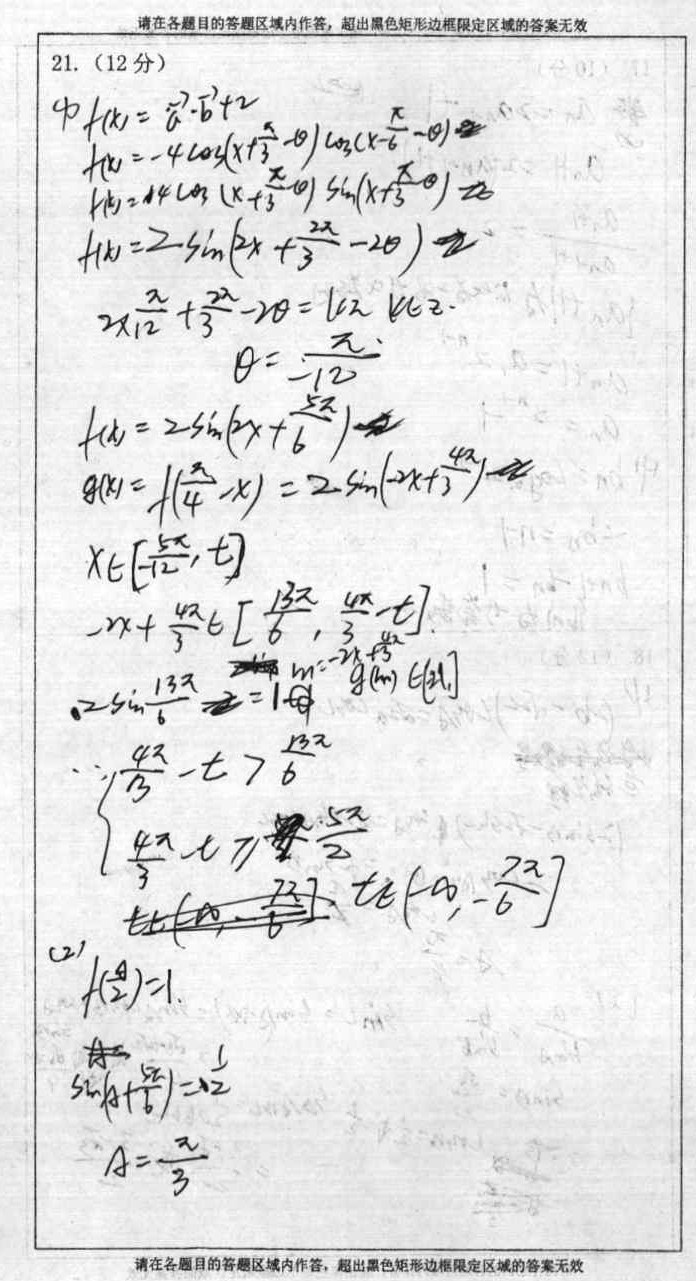 请在各题目的答题区域内作答，超出黑色矩形边框限定区域的答案无效
21.（12分）
(1) f(x) = a⃗·b⃗+2
f(x) = -4cos(x+π/3-θ) cos(x-π/6-θ)
f(x) = 4cos(x+π/3-θ) sin(x+π/3-θ)
f(x) = 2sin(2x+2π/3-2θ)
2×π/12+2π/3-2θ = kπ k∈Z.
θ = π/-12
f(x) = 2sin(2x+5π/6)
g(x) = f(π/4-x) = 2sin(-2x+4π/3)
x∈[-5π/12, t]
-2x+4π/3∈[13π/6, 4π/3-t]
m=-2x+4π/3
2sin13π/6 = 1 g(m)∈[2,1]
∴ { 4π/3-t > 13π/6
4π/3-t ≥ 5π/2
t∈(-∞, -7π/6]
(2)
f(A/2)=1.
sin(A+5π/6) = 1/2
A = π/3
请在各题目的答题区域内作答，超出黑色矩形边框限定区域的答案无效